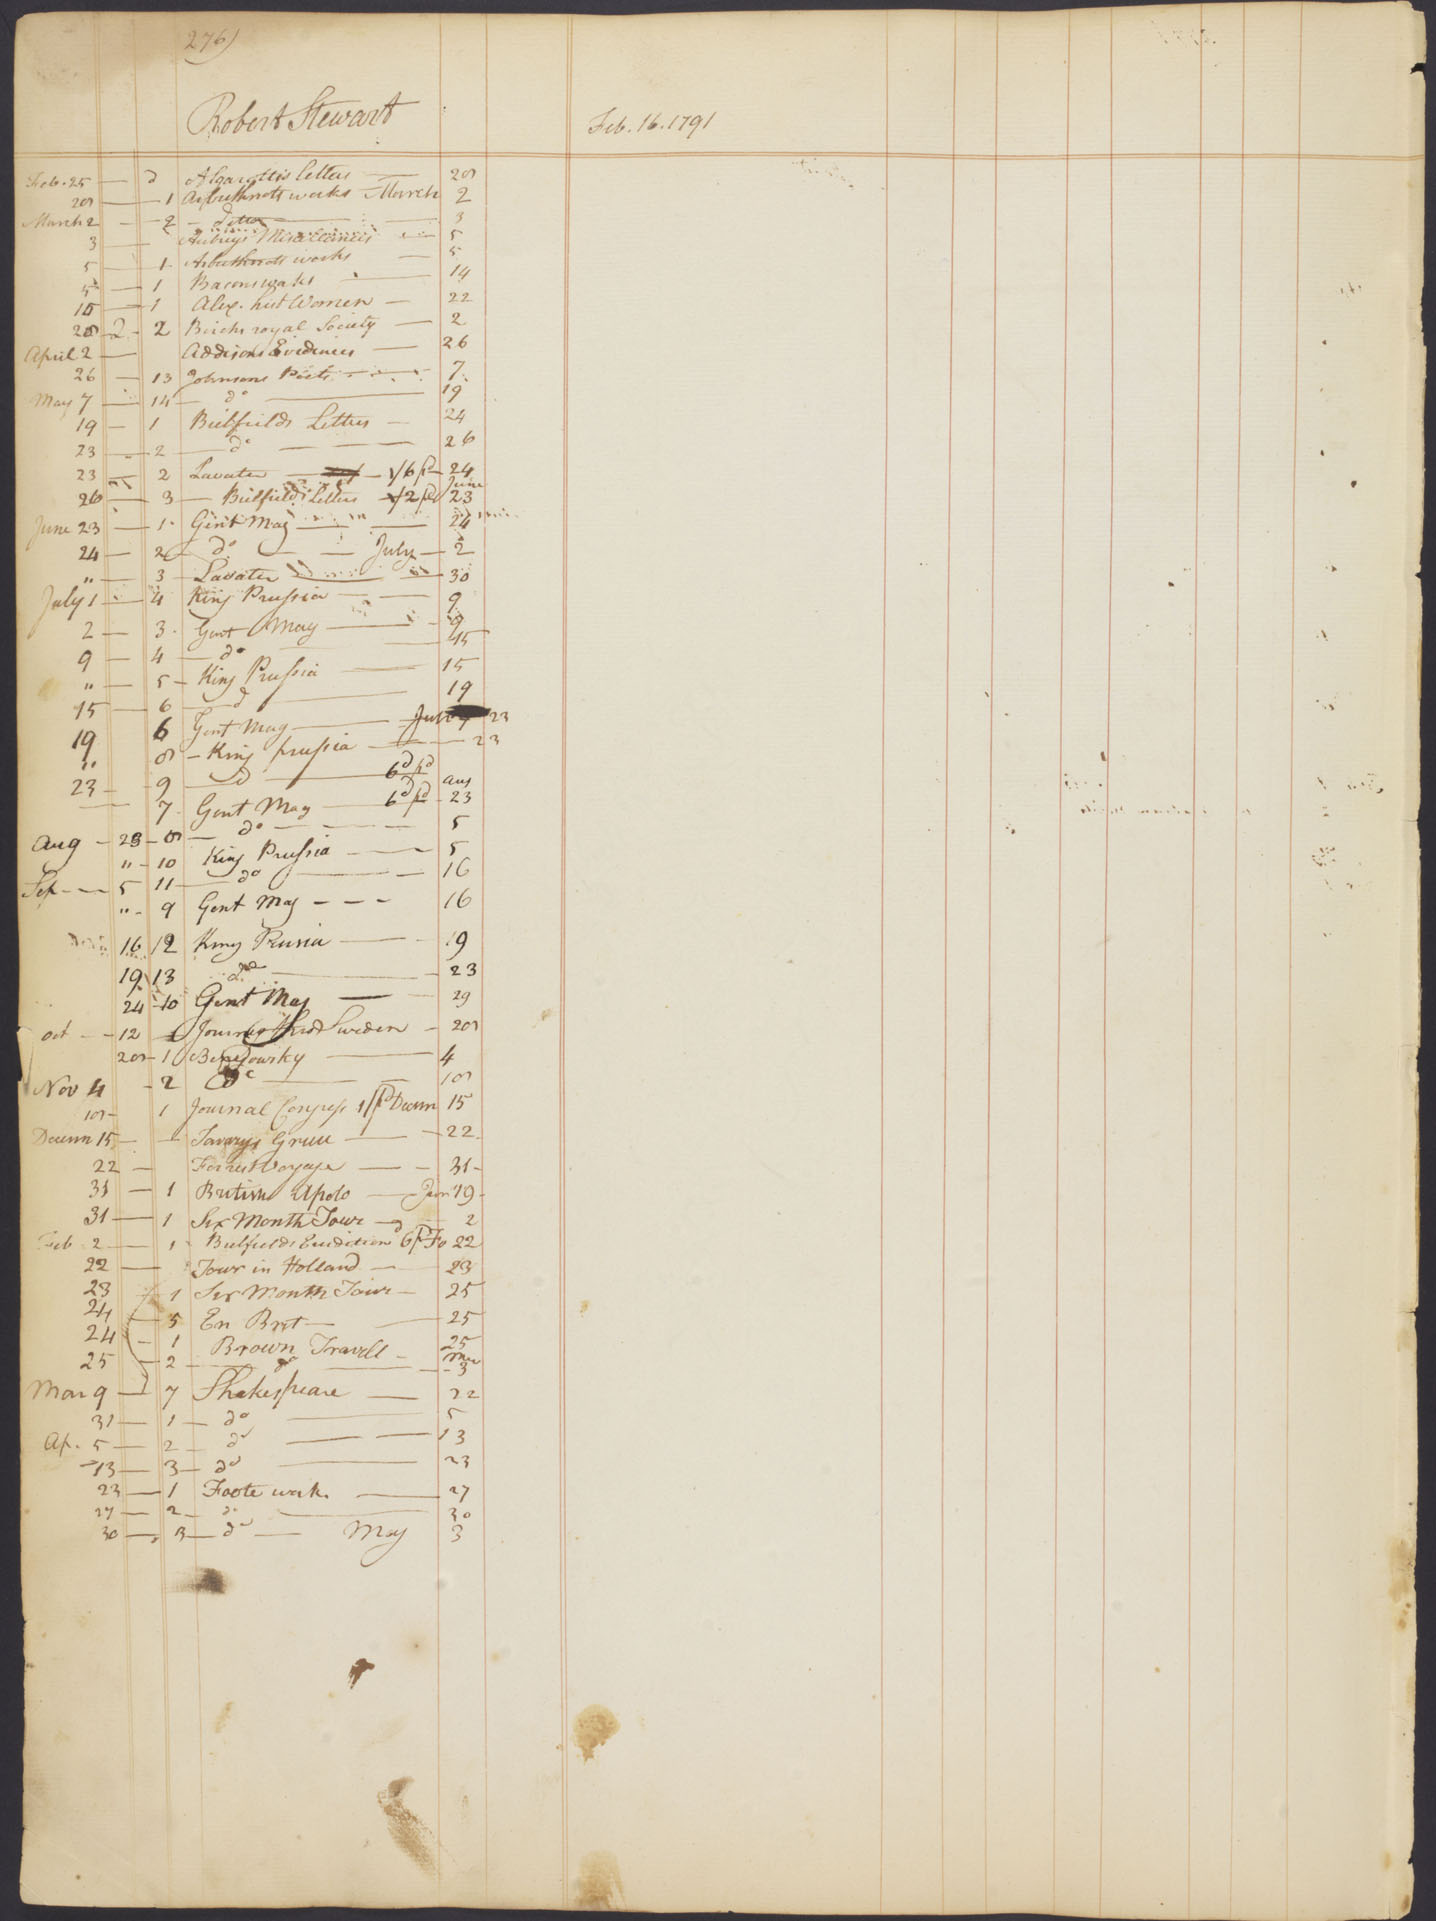 276)
Robert Stewart Feb. 16. 1791
Feb. 25 — d Algarottis Letters — 28
28 — 1 Arbuthnots works — March 2
March 2 — 2 — Ditto — 3
3 — Aubreys Miscellanies — 5
5 — 1 Arbuthnots works — 5
5 — 1 Bacons works — 14
15 — 1 Alex. hist Women — 22
28 — 2 — 2 Birchs royal Society — 2
April 2 — Addisons Evidences — 26
26 — 13 Johnsons Poets — 7
May 7 — 14 — do — 19
19 — 1 Bielfields Letters — 24
23 — 2 — do — 26
23 — 2 Lavater — 1/6 pd — 24
26 — 3 — Bielfields Letters — /2 pd June 23
June 23 — 1 Gent Mag — 24
24 — 2 — do — July — 2
" — 3 — Lavater — 30
July 1 — 4 King Prussia — 9
2 — 3 Gent Mag — 9
9 — 4 — do — 15
" — 5 — King Prussia — 15
15 — 6 — d — 19
19 6 Gent Mag — 23
" 8 — King prussia — 23
23 — 9 — d — 6d pd
— 7 Gent Mag — 6d pd — Aug 23
Aug — 23 — 8 — do — 5
" — 10 King Prussia — 5
Sep — 5 11 — do — 16
" — 9 Gent Mag — — — 16
16 12 King Prusia — 19
19 13 do — 23
24 — 10 Gent Mag — 29
Oct — 12 — Journey thro Sweden — 28
28 — 1 Benyowsky — 4
Nov 4 — 2 do — 18
18 — 1 Journal Congress 1/ pd Decem 15
Decem 15 — — Savarys Greece — 22
22 — Forrest Voyage — 31 —
31 — 1 British Apolo — Jan 19 —
31 — 1 Six Month Tour — 2
Feb 2 — 1 Bielfields Erudition 6d pd Fe 22
22 — Tour in Holland — 23
23 1 Six Month Tour — 25
24 — 5 En Brit — 25
24 — 1 Brown Travels — 25
25 — 2 — do — Mar 3
Mar 9 — 7 Shakespeare — 22
31 — 1 — do — 5
Ap. 5 — 2 — do — 13
13 — 3 — do — 23
23 — 1 Foote work. — 27
27 — 2 — do — 30
30 — 3 — do — May 3